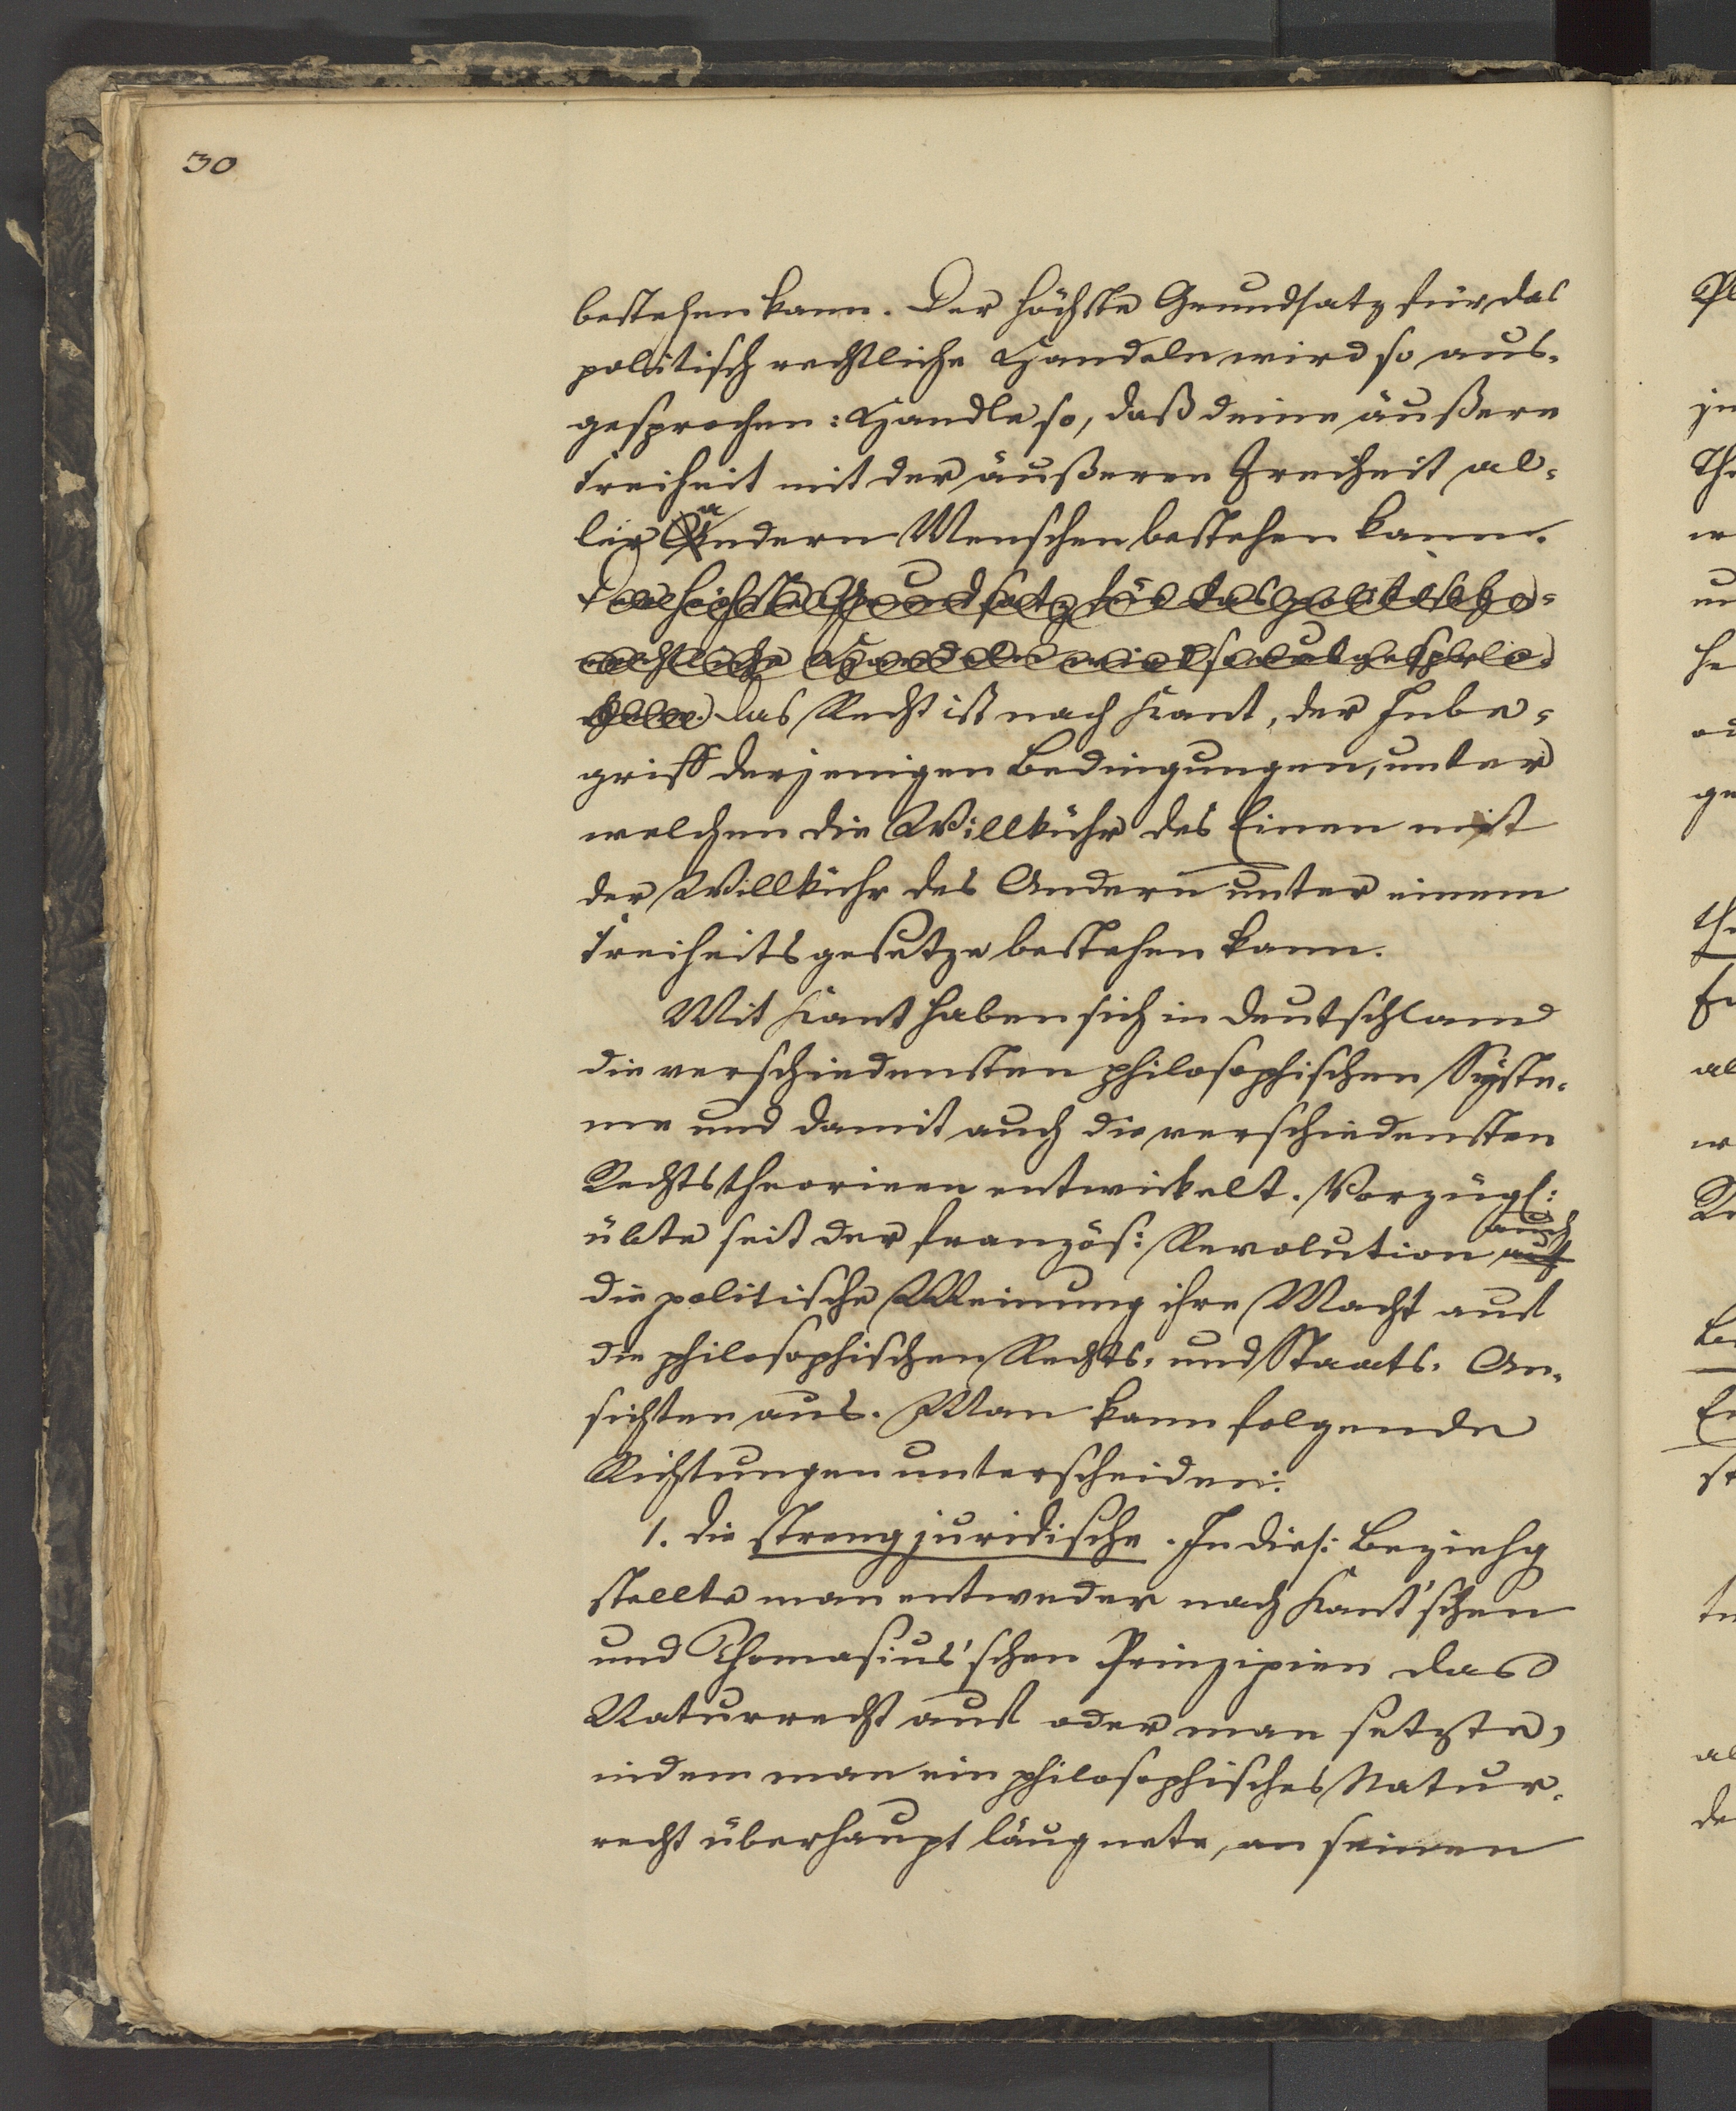 30
bestehen kann. Der höchste Grundsatz für das
politisch rechtliche Handeln wird so aus-
gesprochen: Handle so, daß deine äußere
Freiheit mit der äußeren Freiheit al-
ler andern Menschen bestehen kann.
Der höchste Grundsatz für das politisch-
rechtliche Handeln wird so ausgespro-
chen. Das Recht ist nach Kant, der Inbe-
griff derjenigen Bedingungen, unter
welchen die Willkühr des Einen mit
der Willkühr des Andern unter einem
Freiheitsgesetze bestehen kann.
Mit Kant haben sich in Deutschland
die verschiedensten philosophischen Syste-
me und damit auch die verschiedensten
Rechtstheorieen entwickelt. Vorzügl:
auch
übte seit der französ: Revolution auf
die politische Meinung ihre Macht auf
die philosophischen Rechts- und Staats-An-
sichten aus. Man kann folgende
Richtungen unterscheiden:
1. die streng juridische. In dies: Beziehg
stellte man entweder nach Kant'schen
und Thomasius'schen Prinzipien das
Naturrecht auf oder man setzte,
indem man ein philosophisches Natur-
recht überhaupt läugnete, an seinen
Pl
je
Th
w
un
he
od
ge
th
En
al
w
Re
Be
En
st
te
al
de